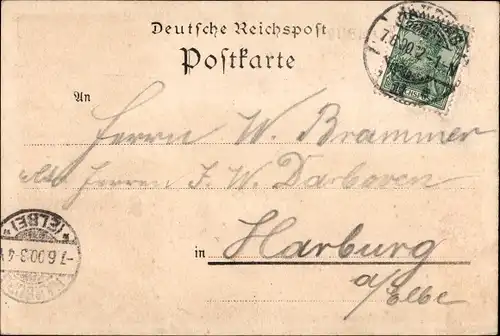 Deutsche Reichspost
Postkarte
HAMBURG
7.6.00
An
Herrn W. Brammer
Herren J. W. Darboven
in Harburg
a/Elbe
(ELBE)
7.6.00.3-4